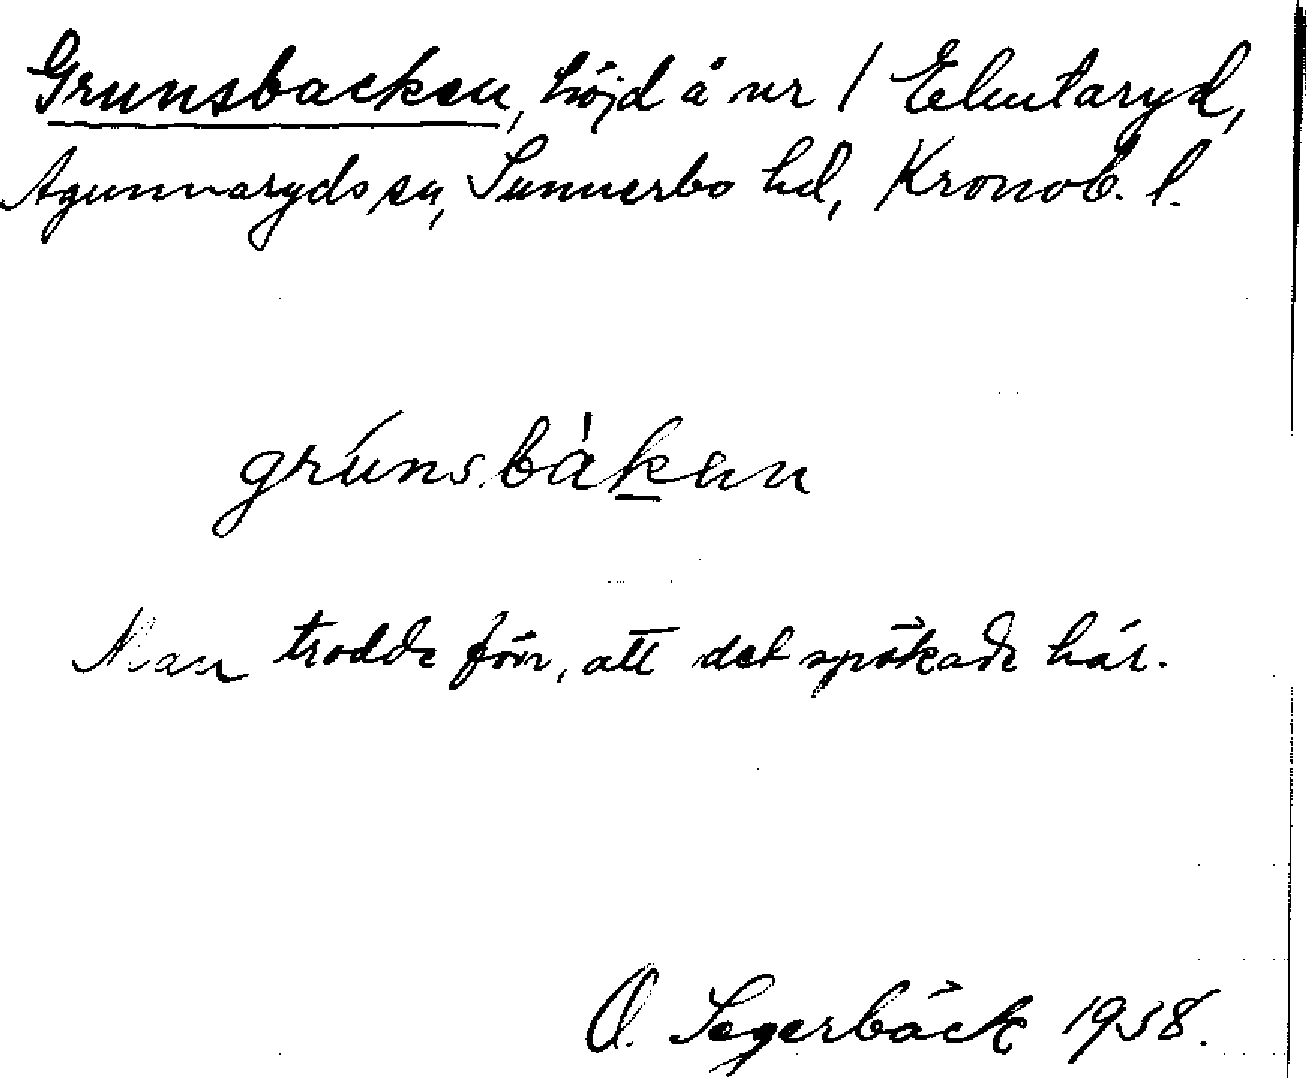 Grunsbacken, höjd å nr 1 Elmtaryd,
Agunnaryds sn, Sunnerbo hd, Kronob. l.
grúnsbàkən
Man trodde förr, att det spökade här.
O. Segerbäck 1938.